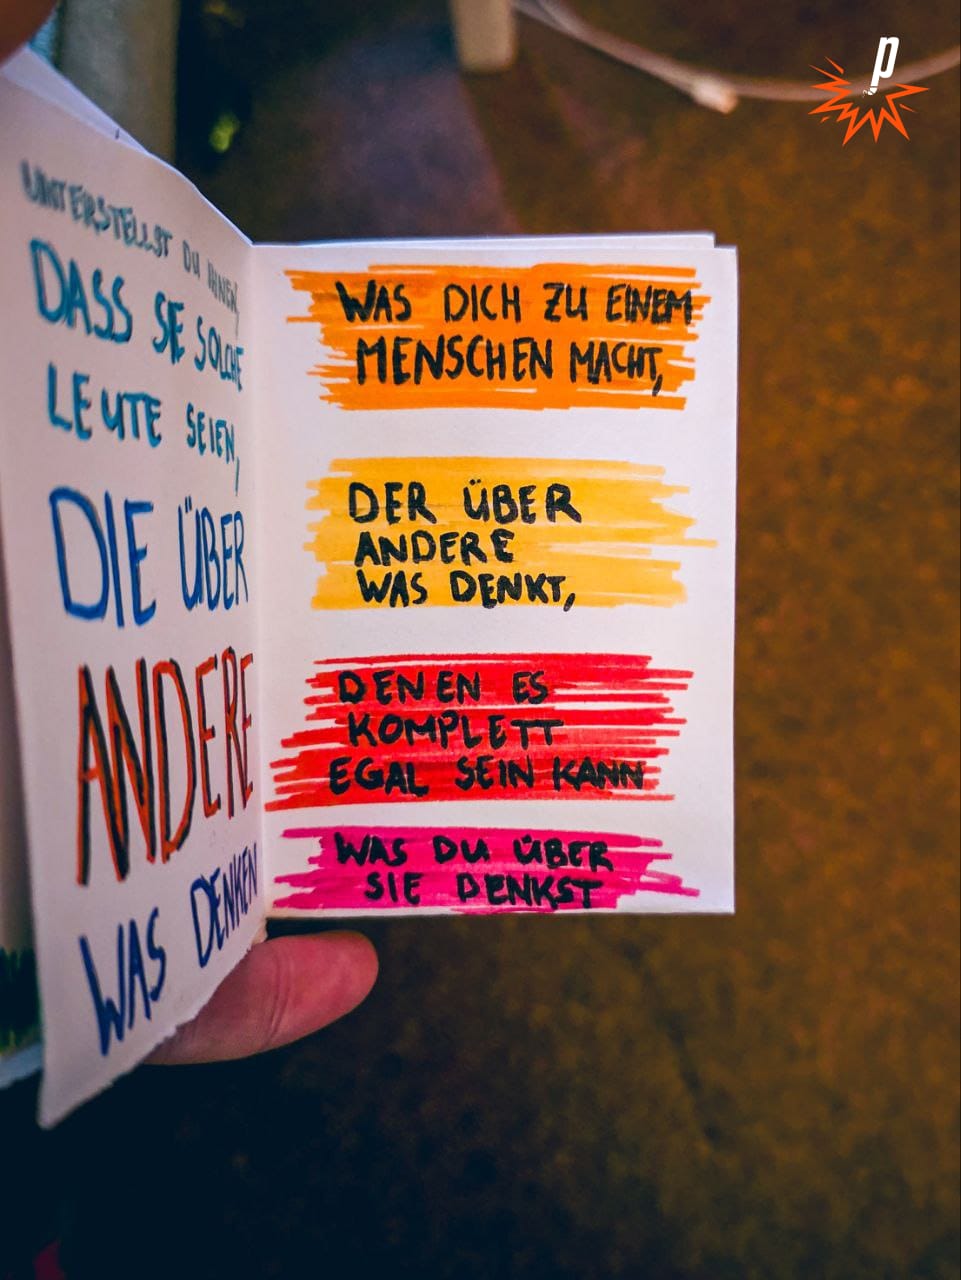 UNTERSTELLST DU IHNEN,
DASS SIE SOLCHE
LEUTE SEIEN,
DIE ÜBER
ANDERE
WAS DENKEN
WAS DICH ZU EINEM
MENSCHEN MACHT,
DER ÜBER
ANDERE
WAS DENKT,
DENEN ES
KOMPLETT
EGAL SEIN KANN
WAS DU ÜBER
SIE DENKST
p